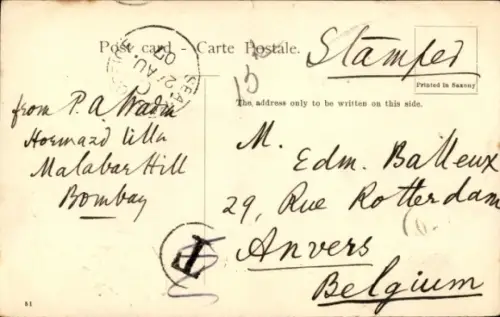 Post card - Carte Postale.
Stamped
Printed in Saxony
The address only to be written on this side.
from P. A. Wadia
Hormazd Villa
Malabar Hill
Bombay
M.
Edm. Balleux
29, Rue Rotterdam
Anvers
Belgium
T
51